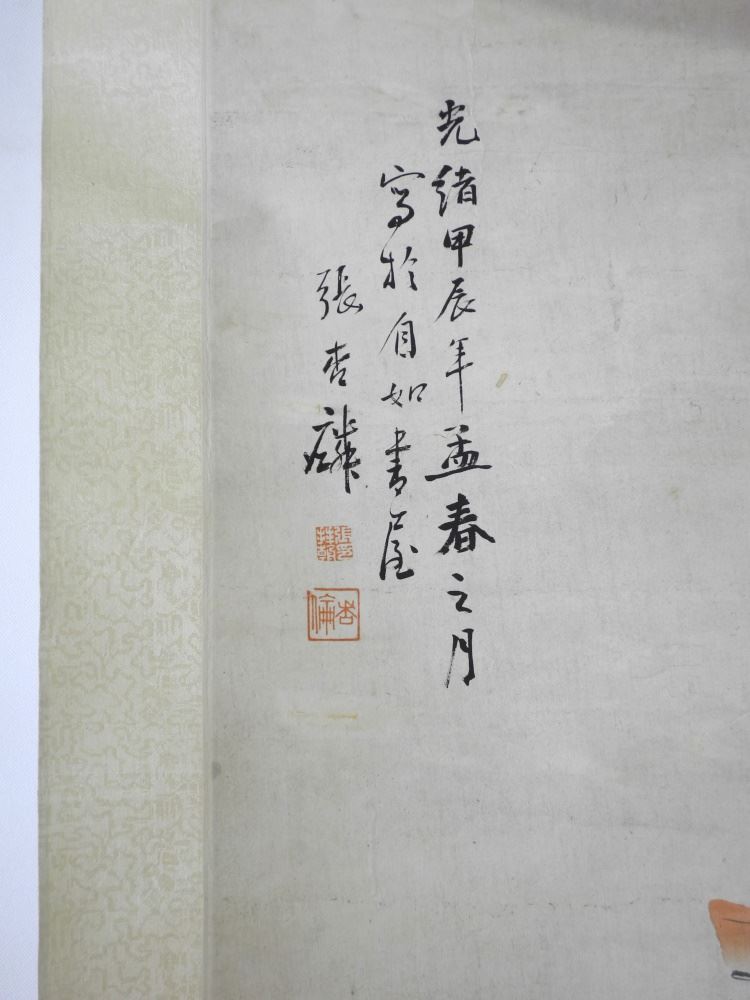 光緒甲辰年孟春之月
寫於自如書屋
張杏麟
杏倫